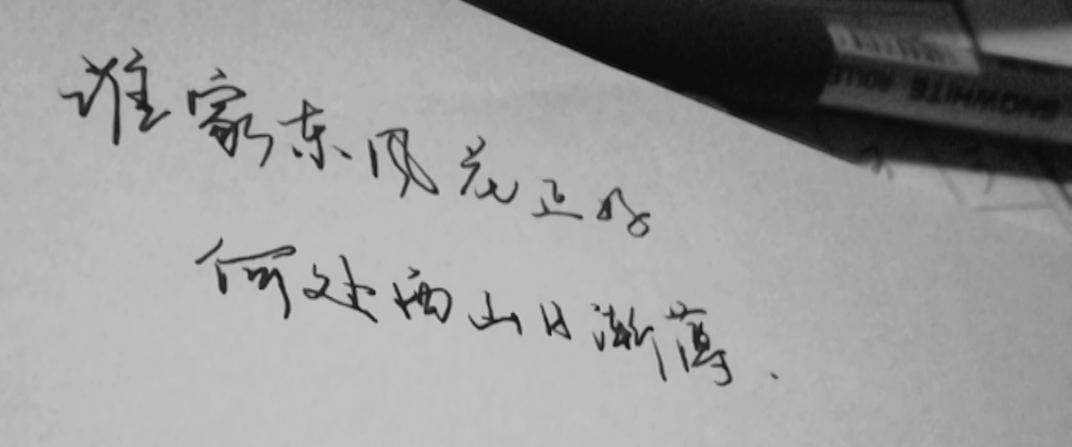 谁家东风花正好
何处西山日渐薄.
SNOWWHITE ROLLE